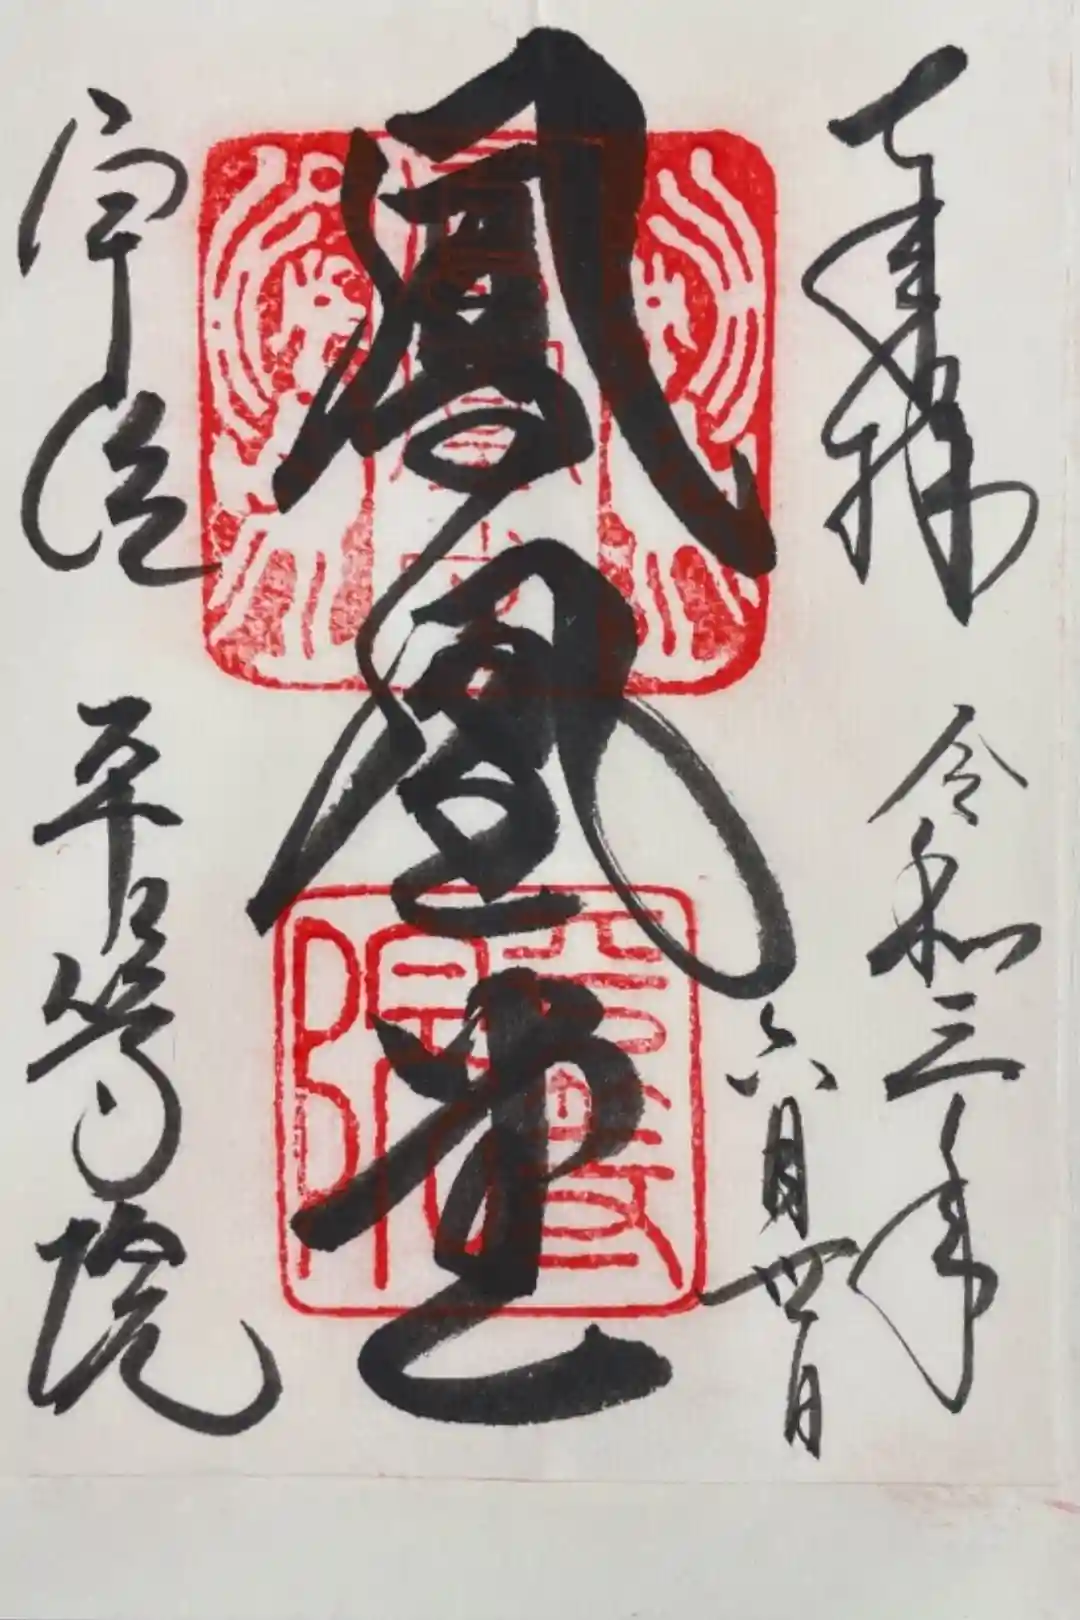 奉拝
令和三年
六月廿日
鳳凰堂
宇治
平等院
平等
院